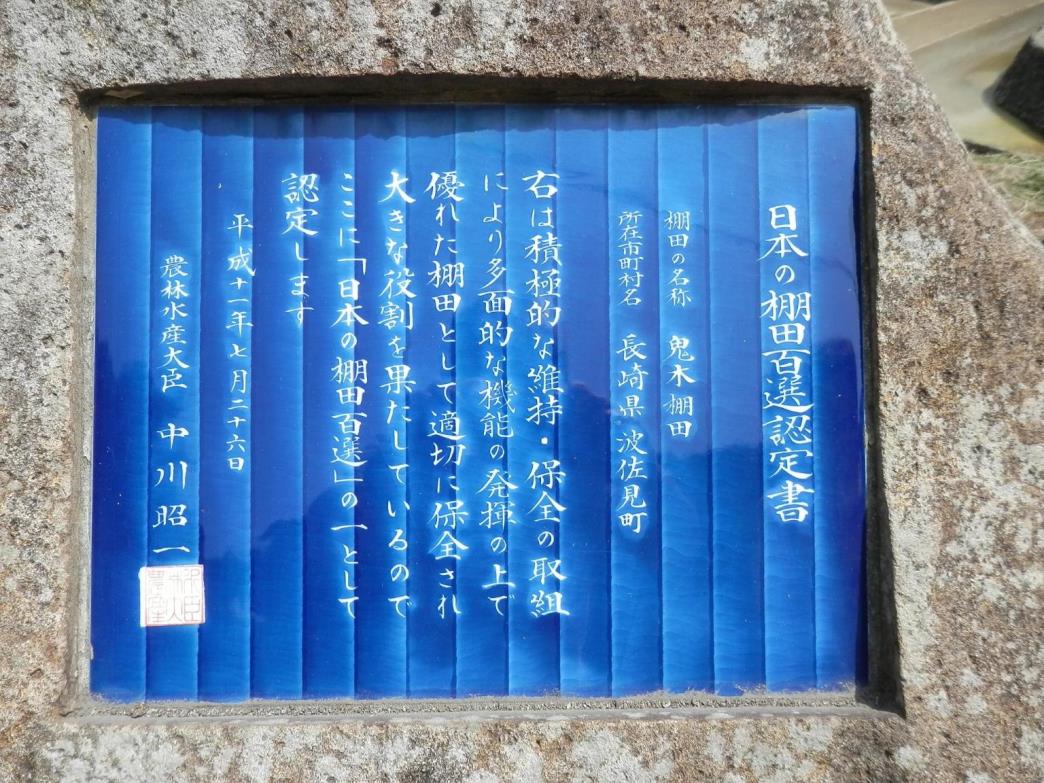 日本の棚田百選認定書
棚田の名称 鬼木棚田
所在市町村名 長崎県 波佐見町
右は積極的な維持・保全の取組
により多面的な機能の発揮の上で
優れた棚田として適切に保全され
大きな役割を果たしているので
ここに「日本の棚田百選」の一として
認定します
平成十一年七月二十六日
農林水産大臣 中川昭一